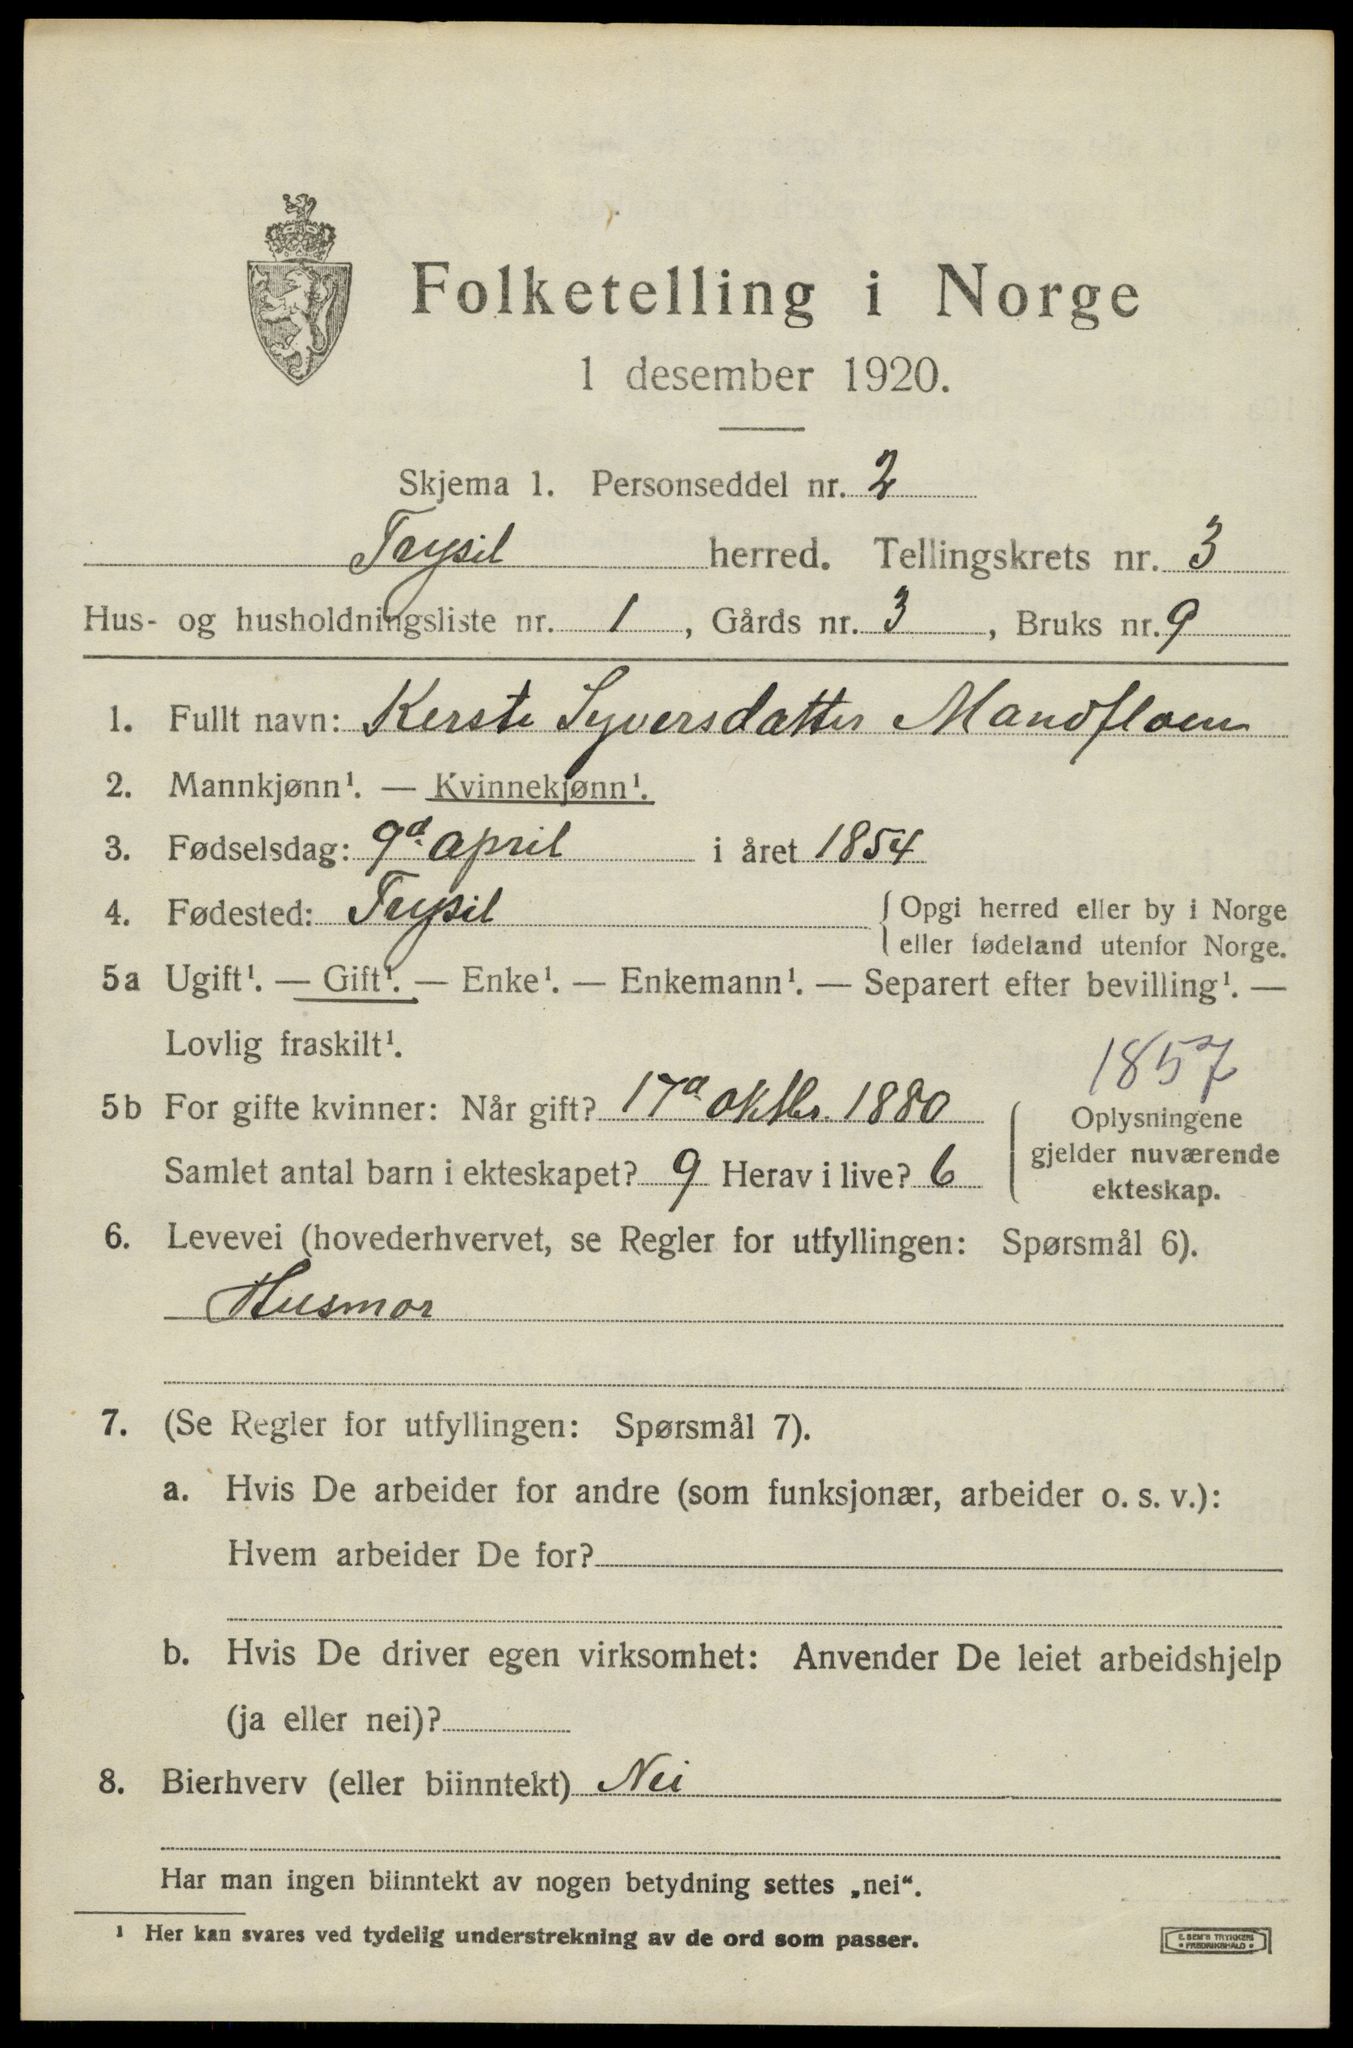 Folketelling i Norge
1 desember 1920.
Skjema 1. Personseddel nr. 2
Trysil herred. Tellingskrets nr. 3
Hus- og husholdningsliste nr. 1, Gårds nr. 3, Bruks nr. 9
1. Fullt navn: Kersti Syversdatter Mandfloen
2. Mannkjønn¹. — Kvinnekjønn¹.
3. Fødselsdag: 9d. april i året 1854
4. Fødested: Trysil { Opgi herred eller by i Norge
eller fødeland utenfor Norge.
5a Ugift¹. — Gift¹. — Enke¹. — Enkemann¹. — Separert efter bevilling¹. —
Lovlig fraskilt¹.
1857
5b For gifte kvinner: Når gift? 17d. oktbr. 1880
Samlet antal barn i ekteskapet? 9 Herav i live? 6
Oplysningene
gjelder nuværende
ekteskap.
6. Levevei (hovederhvervet, se Regler for utfyllingen: Spørsmål 6).
Husmor
7. (Se Regler for utfyllingen: Spørsmål 7).
a. Hvis De arbeider for andre (som funksjonær, arbeider o. s. v.):
Hvem arbeider De for?
b. Hvis De driver egen virksomhet: Anvender De leiet arbeidshjelp
(ja eller nei)?
8. Bierhverv (eller biinntekt) Nei
Har man ingen biinntekt av nogen betydning settes „nei“.
¹ Her kan svares ved tydelig understrekning av de ord som passer.
E. SEM'S TRYKKERI
• FREDRIKSHALD •